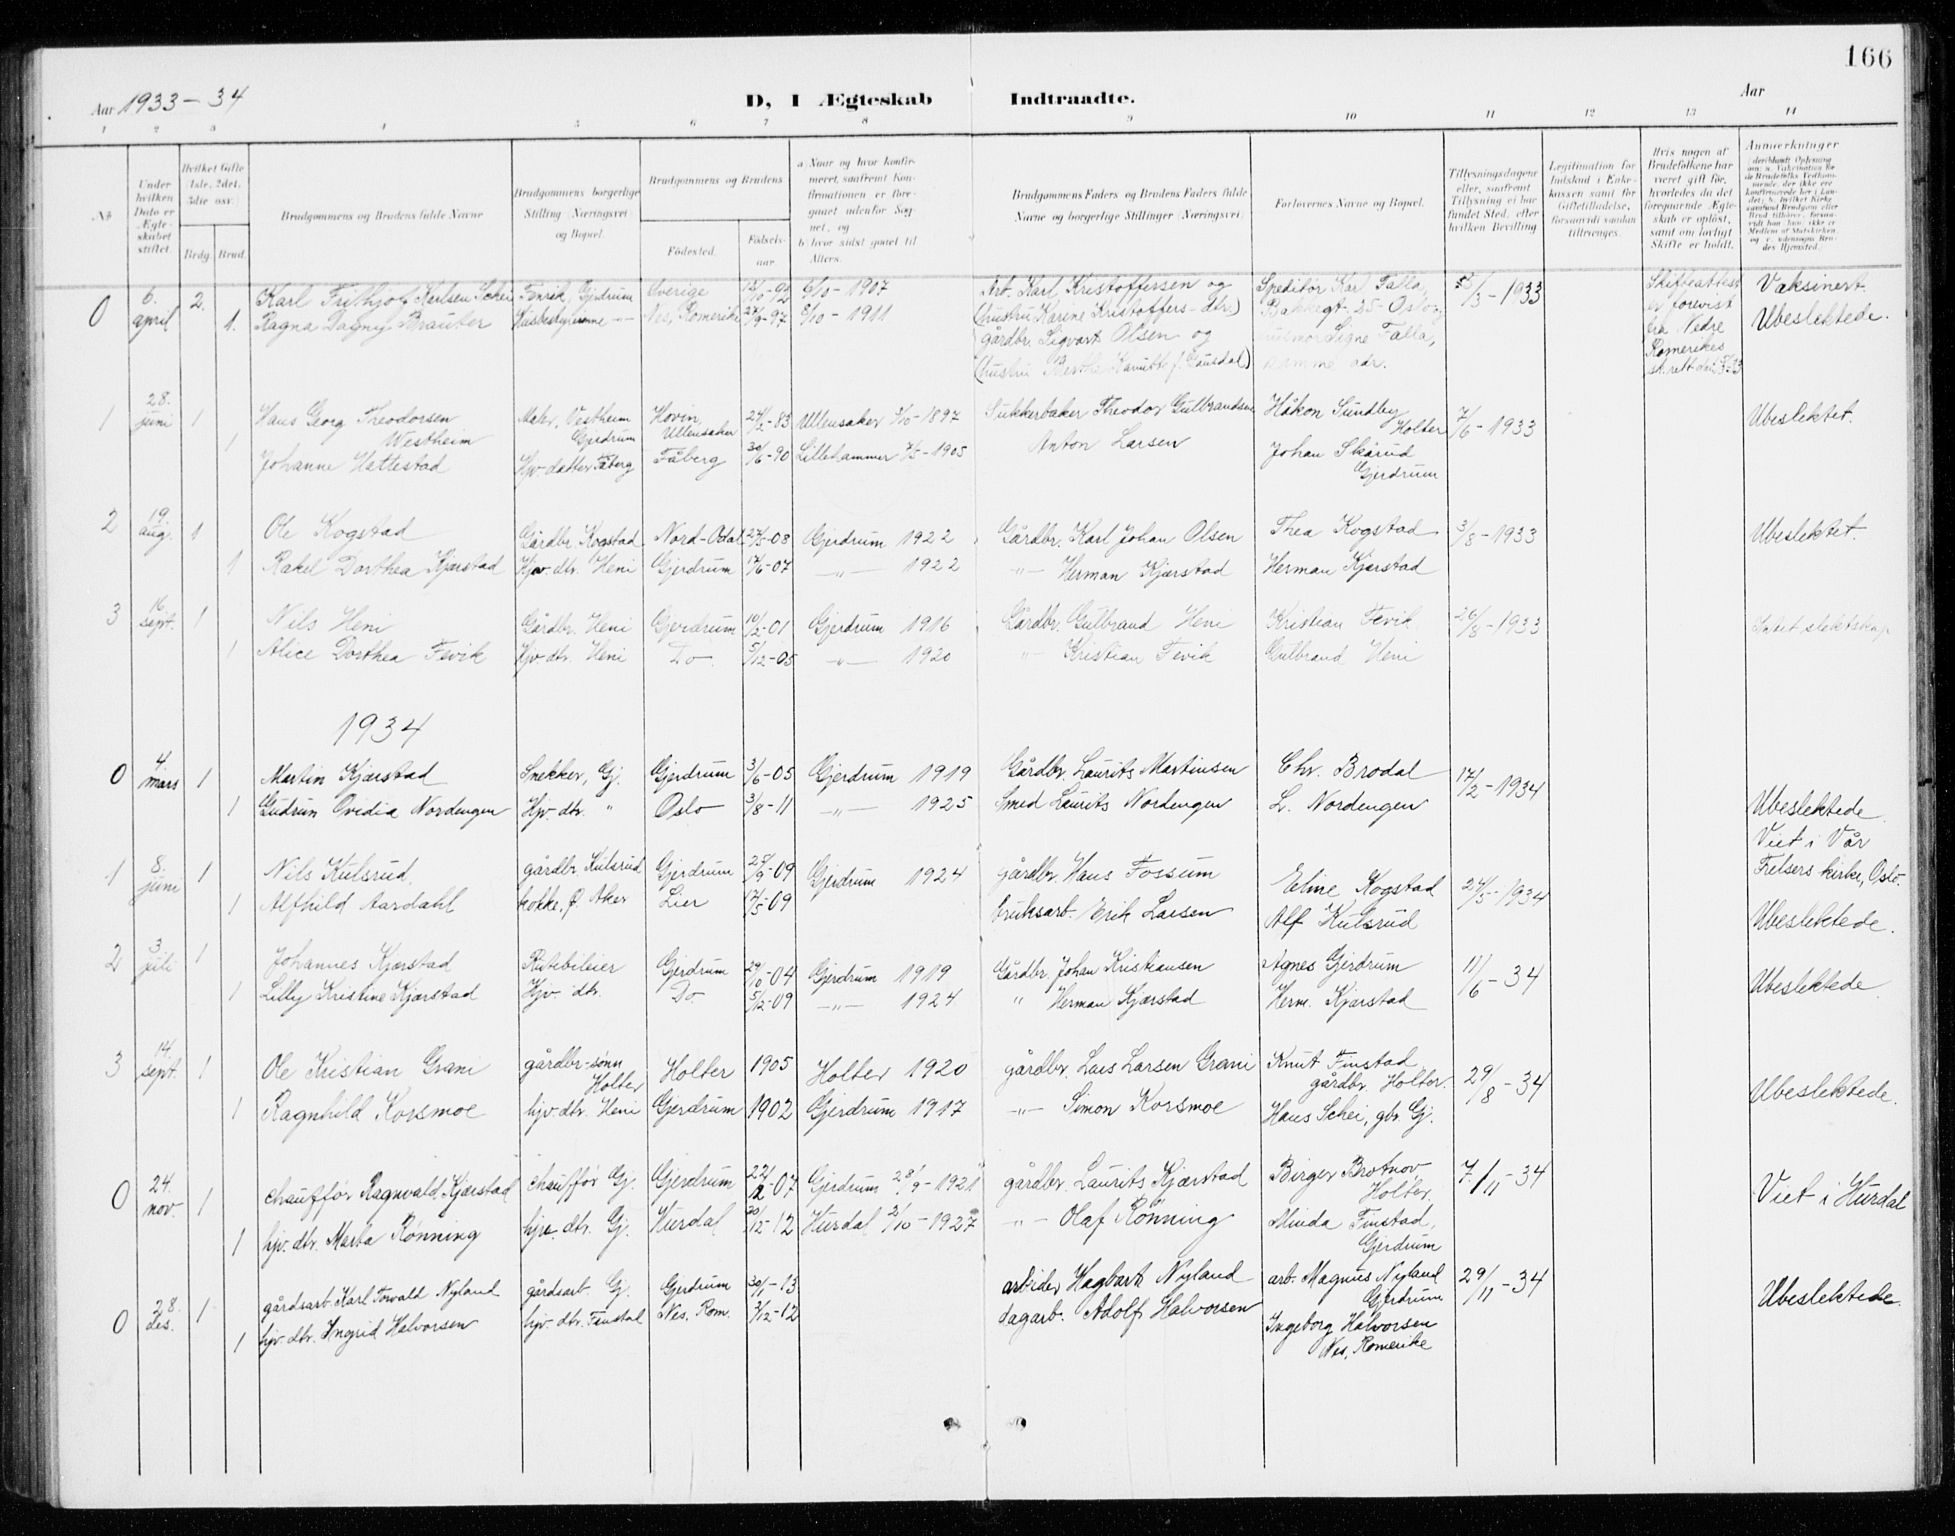 166
Aar 1933-34
D, I Ægteskab Indtraadte.
Aar
1 2 3 4 5 6 7 8 9 10 11 12 13 14
Under hvilken Dato er Ægteskabet stiftet.
Hvilket Gifte (1ste, 2det, 3die osv.)
Brdg. Brud.
Brudgommens og Brudens fulde Navne
Brudgommens borgerlige Stilling (Næringsvei) og Bopæl.
Brudgommens og Brudens
Fødested. Fødselsaar
a. Naar og hvor konfirmeret, saafremt Konfirmationen er foregaaet udenfor Sognet, og
b. hvor sidst gaaet til Alters.
Brudgommens Faders og Brudens Faders fulde Navne og borgerlige Stillinger (Næringsvei)
Forlovernes Navne og Bopæl.
Tillysningsdagene eller, saafremt Tillysning ei har fundet Sted, efter hvilken Bevilling
Legitimation for Indskud i Enkekassen samt for Giftetilladelse, forsaavidt saadan tiltrænges.
Hvis nogen af Brudefolkene har været gift før, hvorledes da det foregaaende Ægteskab er opløst, samt om lovligt Skifte er holdt.
Anmerkninger
0 6. april 2. Karl Frithjof Karlsen Schei Fenrik, Gjerdrum Sverige 12/10-92 6/10-1907 Arb. Karl Kristoffersen og Speditør Karl Falla, 1933 Skifteattest Vaksinert.
1. Ragna Dagny Brauter Husbestyrerinne -"- Nes, Romerike 27/9-97 8/10-1911 (hustru Karine Kristoffers-dtr.) Bakkegt. 25 - Oslo er forevist Ubeslektede.
gårdbr. Sigvart Olsen og husmor Signe Falla, fra Nedre
samme adr. Romerikes
1 28. juni 1 Hans Georg Theodorsen Westheim Maler, Vestheim Gjerdrum Hovin, Ullensaker 24/2-83 Ullensaker 3/10-1897 Sukkerbaker Theodor Gulbrandsen Håkon Sundby Holter 7/6-1933 Ubeslektet.
1 Johanne Hattestad Hjv. datter Fåberg Fåberg 30/6-90 Lillehammer 7/5-1905 Anton Larsen Johan Skårud Gjerdrum
2 19 aug. 1 Ole Kogstad Gårdbr. Kogstad Nord-Odal 27/5-08 Gjerdrum 1922 Gårdbr. Karl Johan Olsen Thea Kogstad 3/8-1933 Ubeslektet.
1 Rakel Dorthea Kjærstad Hjv. dtr. Heni Gjerdrum 17/6-07 -"- 1922 -"- Herman Kjærstad Herman Kjærstad
3 16 sept. 1 Nils Heni Gårdbr. Heni Gjerdrum 10/2-01 Gjerdrum 1916 Gårdbr. Gulbrand Heni Kristian Fevik 26/8-1933 Intet slektskap
1 Alice Dorthea Fevik Hjv. dtr. Heni Do 5/12-05 -"- 1920 -"- Kristian Fevik Gulbrand Heni
1934
0 4. mars 1 Martin Kjærstad Snekker, Gj. Gjerdrum 3/6-05 Gjerdrum 1919 Gårdbr. Laurits Martinsen Chr. Brodal 17/2-1934
1 Gudrun Ovedia Nordengen Hjv. dtr. " Oslo 3/8-11 -"- 1925 Smed Laurits Nordengen L. Nordengen Ubeslektede.
Viet i Vår
1 8. juni 1 Nils Kulsrud. gårdbr. Kulsrud Gjerdrum 25/9-09 Gjerdrum 1924 gårdbr. Hans Fossum Eline Kogstad 24/5-1934 Frelsers kirke, Oslo.
1 Alfhild Aardahl kokke, Ø. Aker Lier 17/5-09 bruksarb. Erik Larsen Alf Kulsrud Ubeslektede.
2 3 juli 1 Johannes Kjærstad Rutebileier Gjerdrum 29/10-04 Gjerdrum 1919 Gårdbr. Johan Kristiansen Agnes Gjerdrum 11/6-34
1 Lilly Kristine Kjærstad Hjv. dtr. Do 5/2-09 -"- 1924 " Herman Kjærstad Herm. Kjærstad Ubeslektede.
3 14. sept. 1 Ole Kristian Grani gårdbr-sønn Holter Holter 1905 Holter 1920 gårdbr. Lars Larsen Grani Knut Finstad gårdbr. Holter. 29/8-34
1 Ragnhild Korsmoe hjv. dtr. Heni Gjerdrum 1902 Gjerdrum 1917 -"- Simon Korsmoe Hans Schei, gbr. Gj. Ubeslektede.
0 24. nov. 1 chauffør Ragnvald Kjærstad chauffør Gj. Gjerdrum 22/2-07 Gjerdrum 28/9-1921 gårdbr. Laurits Kjærstad Birger Brotnov Holter. 7/11-34 Viet i Hurdal
1 hjv. dtr. Marta Rønning hjv. dtr. Gj. Hurdal 30/12-12 Hurdal 2/10-1927 -"- Olaf Rønning Minda Finstad, Gjerdrum
0 28. des. 1 gårdsarb. Karl Torvald Nyland gårdsarb. Gj. Gjerdrum 30/1-13 arbeider Hagbart Nyland arb. Magnus Nyland Gjerdrum 29/11-34 Ubeslektede.
1 hjv. dtr. Ingrid Halvorsen hjv. dtr. Finstad Nes, Rom. 3/12-12 dagarb. Adolf Halvorsen Ingeborg Halvorsen Nes, Romerike